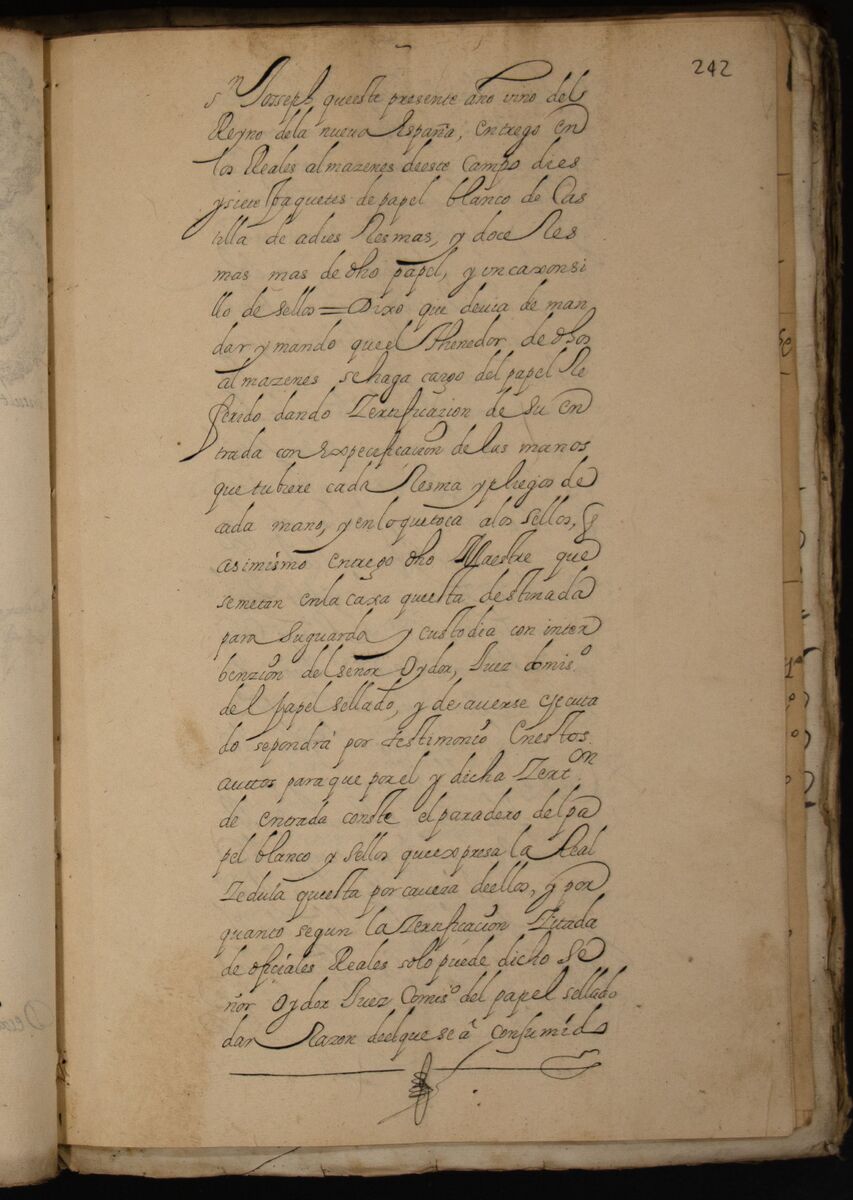 242
Sn Joseph queeste presente año vino del
Reyno dela nueva españa, entrego en
los Reales almazenes deeste campo dies
ysiete paquetes de papel blanco de Cas
tilla de adies Resmas, y doce Res
mas mas de dho papel, y un caxonsi
llo de sellos = Dixo que devia de man
dar y mando queel thenedor de dhos
almazenes sehaga cargo del papel Re
ferido dando Zertificazion de su en
trada con expecificacion de las manos
que tubiere cada Resma y pliegos de
cada mano, y enloquetoca alos sellos, q
asimismo entrego dho Maestre que
semetan enla caxa queesta destinada
para suguarda y custodia con inter
benzion del señor Oydor, Juez Comiso
del papel sellado, y de averse ejecuta
do sepondra por testimonio enestos
auttos para que por el y dicha Zerton
de entrada conste el paradero del pa
pel blanco y sellos queexpresa la Real
Zedula queesta por caveza deellos, y por
quanto segun la Zertificacion Zitada
de oficiales Reales solo puede dicho Se
ñor Oydor Juez Comiso del papel sellado
dar Razon deelque se á consumido